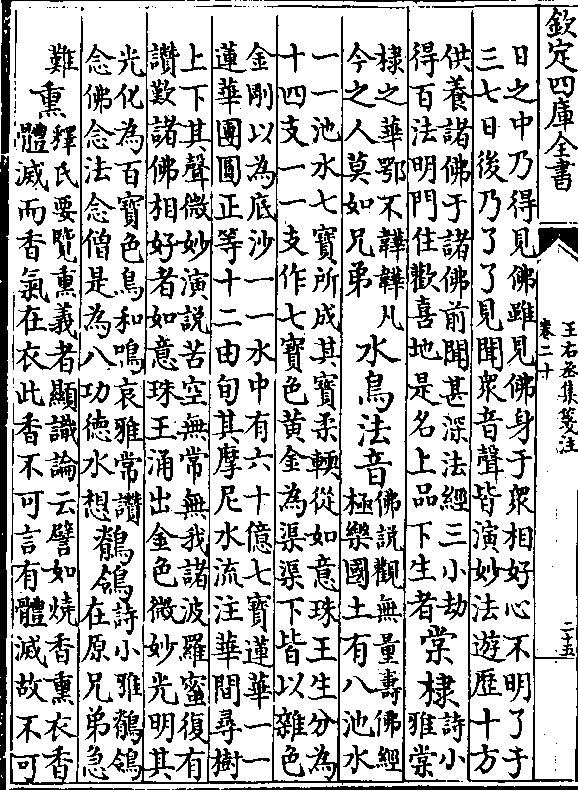 欽定四庫全書
王右丞集箋注
卷二十
二十五
日之中乃得見佛雖見佛身于衆相好心不明了于
三七日後乃了了見聞衆音聲皆演妙法遊歷十方
供養諸佛于諸佛前聞甚深法經三小劫
得百法明門住歡喜地是名上品下生者
棠棣
詩小
雅棠
棣之華鄂不韡韡凡
今之人莫如兄弟
水鳥法音
佛說觀無量壽佛經
極樂國土有八池水
一一池水七寶所成其寶柔輭從如意珠王生分為
十四支一一支作七寶色黄金為渠渠下皆以雜色
金剛以為底沙一一水中有六十億七寶蓮華一一
蓮華團圓正等十二由旬其摩尼水流注華間尋樹
上下其聲微妙演説苦空無常無我諸波羅蜜復有
讚歎諸佛相好者如意珠王涌出金色微妙光明其
光化為百寶色鳥和鳴哀雅常讚
念佛念法念僧是為八功德水想
鶺鴒
詩小雅鶺鴒
在原兄弟急
難
熏
釋氏要覽熏義者顯識論云譬如燒香熏衣香
體滅而香氣在衣此香不可言有體滅故不可